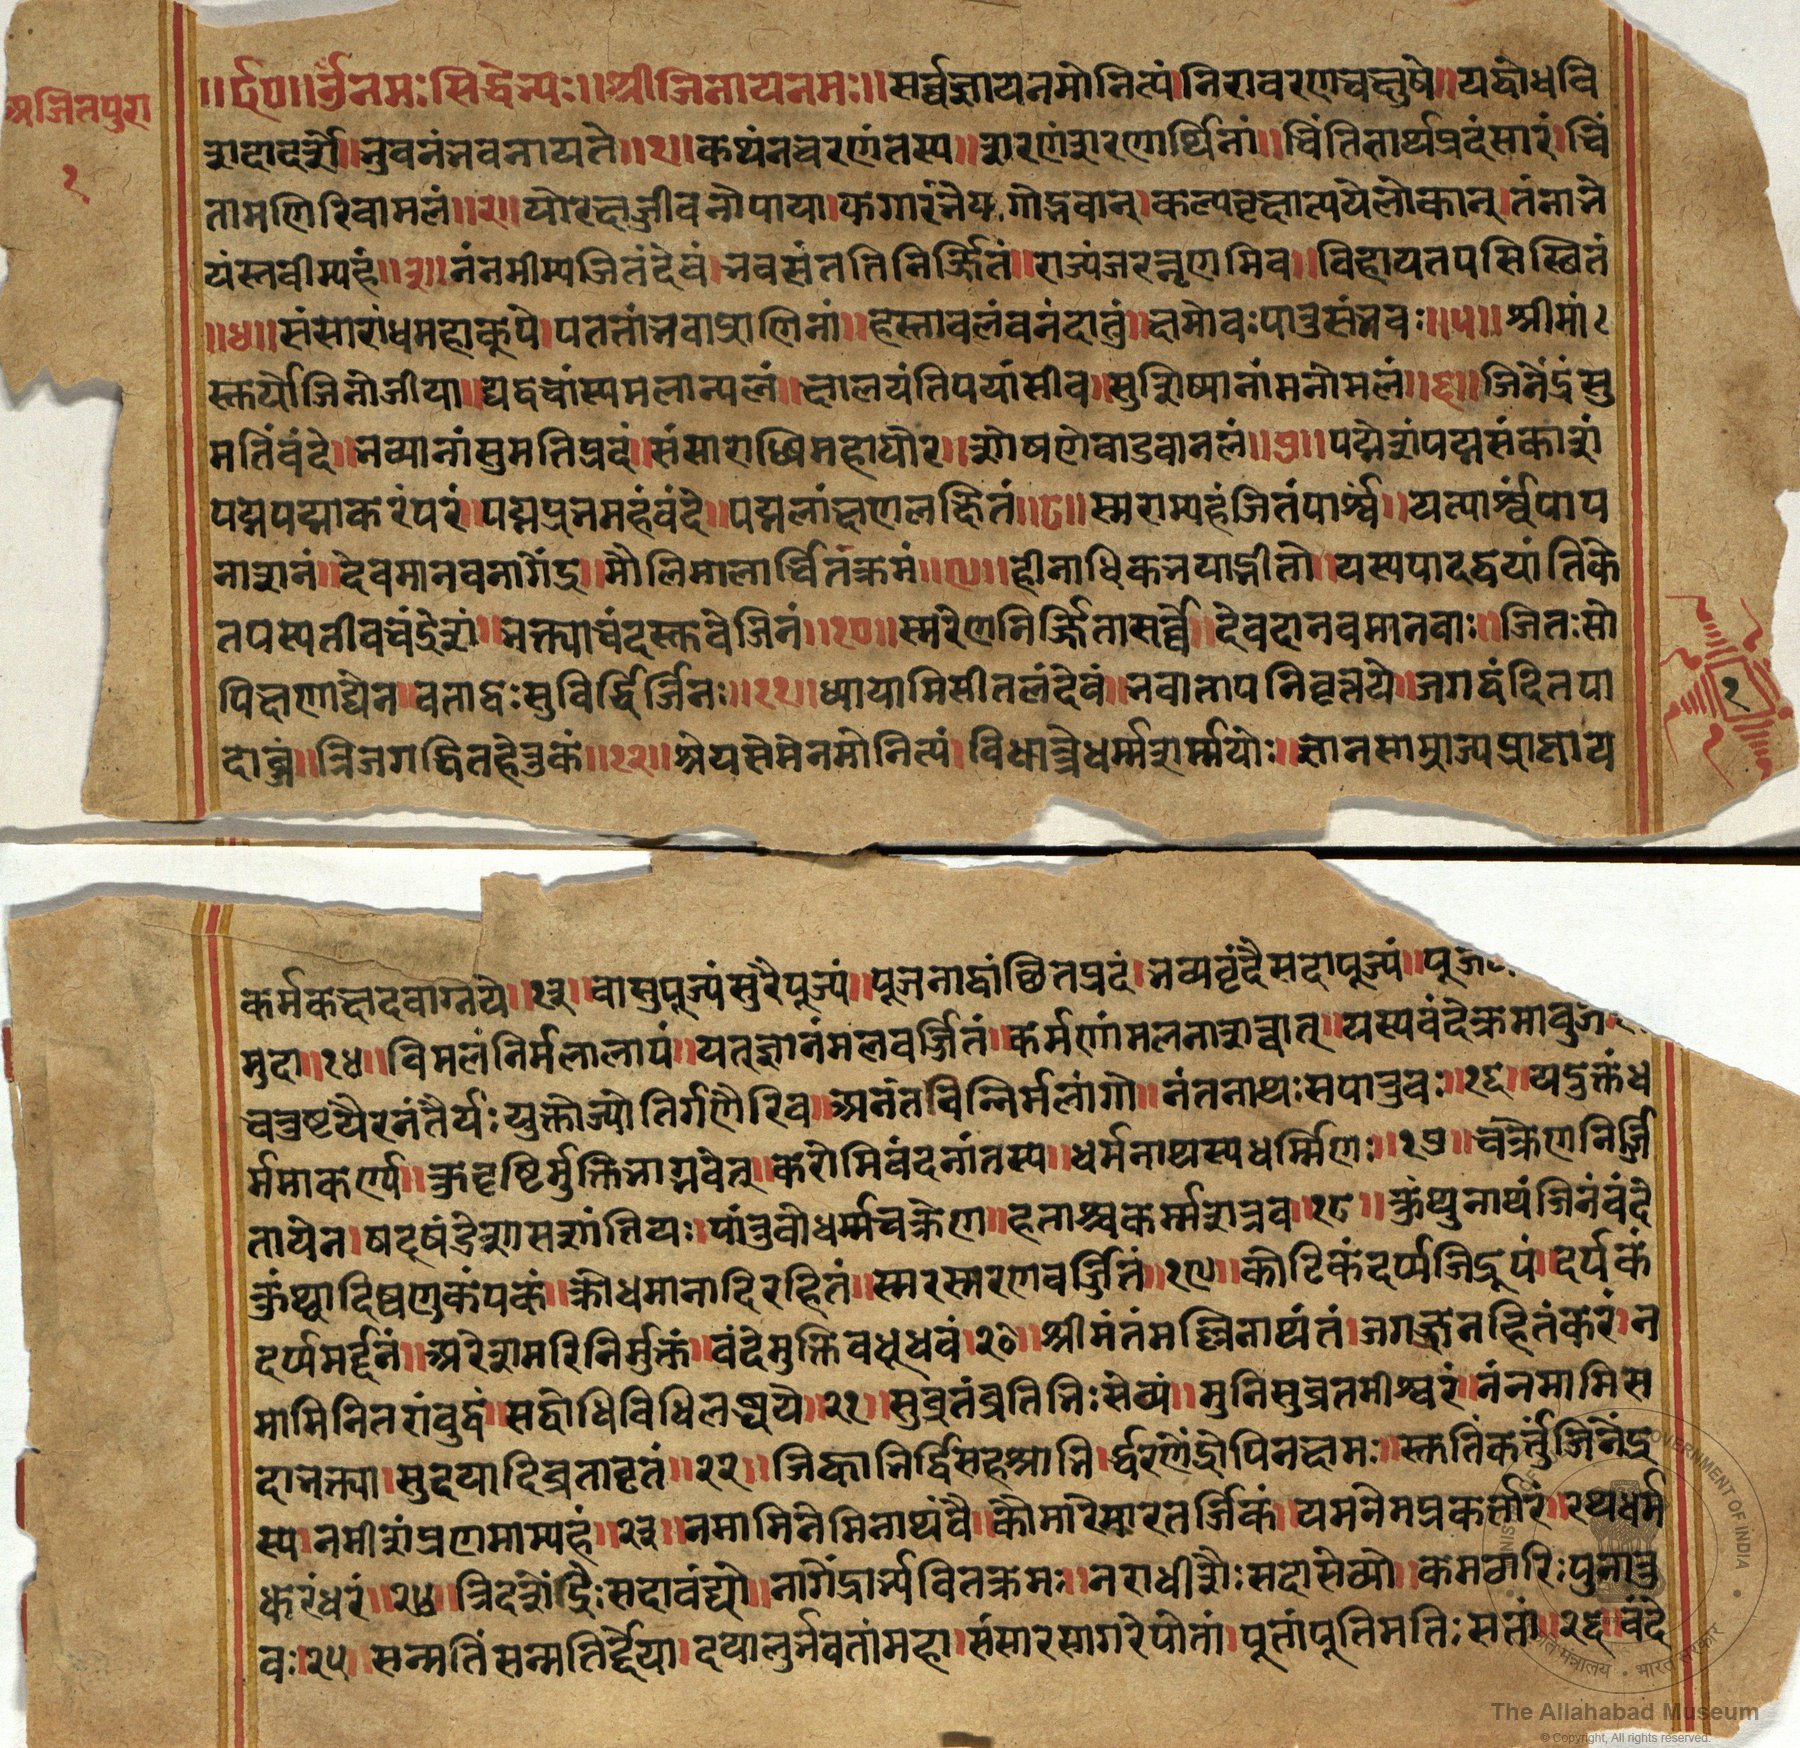 ॥ र्द०॥ र्ॐ नमः सिद्धेभ्यः॥ श्रीजिनायनमः॥ सर्व्वज्ञायनमोनित्यं। निरावरणचक्षुषे॥ यद्बोधवि
अजितपुरा
१
शदादर्शे॥ भुवनंभवनायते॥१॥ कथंनचरणंतस्य॥ शरणंशरणार्थिनां॥ चिंतितार्थप्रदंसारं। चिं
तामणिरिवामलं॥२॥ योरक्षाजीवनोपाया। कल्पवृक्षात्ययेलोकान्। तंनाभे
यंस्तवीम्यहं॥३॥ तंनमीम्यजितंदेवं। भवसंततिनिर्ज्जितं॥ राज्यंजरत्तृणमिव॥ विहायतपसिस्थितं
॥४॥ संसारांधमहाकूपे। पततांभवाप्राणिनां॥ हस्तावलंबनंदातुं॥ क्षमोवःपातुसंभवः॥५॥ श्रीमां
स्तर्योजिनोजीया॥ द्यद्वचांस्यमलान्यलं॥ क्षालयंतिपयांसीव॥ सुशिष्यानांमनोमलं॥६॥ जिनेंद्रंसु
मतिंवंदे॥ भव्यानांसुमतिप्रदं॥ संसाराब्धिमहाघोर॥ शोषणेवाडवानलं॥७॥ पद्मेशंपद्मसंकाशं
पद्मपद्माकरंपरं। पद्मप्रभमहंवंदे॥ पद्मलांक्षणलक्षितं॥८॥ स्मराम्यहंजितंपार्श्वं॥ यत्पार्श्वंपाप
नाशनं॥ देवमानवनागेंद्र॥ मौलिमालार्चितंक्रमं॥९॥ हीनाधिकभयाद्भीतो॥ यस्यपादद्वयांतिके
तपस्यतीवचंद्रेशं॥ भक्त्याचंदस्तवेजिनं॥१०॥ स्मरेणनिर्ज्जितासर्व्वे॥ देवदानवमानवाः॥ जितःसो
पिक्षणाद्येन। वताद्वःसुविर्द्धिर्जिनः॥११॥ ध्यायामिसीतलंदेवं॥ भवातापनिवृत्तये॥ जगद्वंदितपा
दाब्जं॥ त्रिजगद्धितहेतुकं॥१२॥ श्रेयसेमेनमोनित्यं। विधात्रेधर्म्मशर्म्मयोः॥ ज्ञानसाम्राज्यप्राप्ताय
१
कर्मकक्षदवाग्नये॥१३॥ वासुपूज्यंसुरैपूज्यं॥ पूजनाद्वांछितप्रदं। भव्यवृंदैसदापूज्यं॥
मुदा॥१४॥ विमलंनिर्मलालापं॥ यत्ज्ञानंमलवर्जितं॥ कर्मणांमलनाशत्वात्॥ यस्यवंदेक्रमांबुज
चतुष्टयैरनंतैर्यः युक्तोज्योतिर्गणैरिव॥ अनंतचिन्निर्मलांगो॥ नंतनाथःसपातुवः॥१६॥ यदुक्तंध
र्ममाकर्ण्य॥ कुदृष्टिर्मुक्तिभाग्भवेत्॥ करोमिवंदनांतस्य॥ धर्मनाथस्यधर्म्मिणः॥१७॥ चक्रेणनिर्जि
तायेन। षट्षंडेशासशांतियः। पांतुवोधर्म्मचक्रेण॥ हताश्चकर्म्मशत्रव॥१८॥ कुंथुनाथंजिनंवंदे
कुंथ्वादिष्वणुकंपकं॥ क्रोधमानादिरहितं॥ स्मरस्मारणवर्जितं॥१९॥ कोटिकंदर्पजिद्रूपं। दर्पकं
दर्प्पमर्द्दनं॥ अरेशमरिनिर्मुक्तं॥ वंदेमुक्तिवधूधवं॥२०॥ श्रीमंतंमल्लिनाथंतं। जगत्जनहितंकरं। न
मामिनितरांबुद्धं॥ सद्बोधिविधिलब्धये॥२१॥ सुव्रतंव्रतिभिःसेव्यं॥ मुनिसुव्रतमीश्वरं॥ नंनमामिस
दाभक्त्या। सुदयादिव्रतावृतं॥२२॥ जिह्वानिर्द्विसहश्रानि। र्द्धरणेंद्रोपिनक्षमः॥ स्तुतिंकर्त्तुंजिनेंद्र
स्य। नमीशंप्रणमाम्यहं॥२३॥ नमामिनेमिनाथंवै॥ कौमारेस्मारतर्जिकं॥ यमनेमप्रकर्त्तारं॥ रथधर्म
धुरंधरं॥२४॥ त्रिदशेंद्रैःसदावंद्यो॥ नागेंद्रार्च्यवितक्रमः॥ नराधीशैःसदासेव्यो॥ कमठारिःपुनातु
वः॥२५॥ सन्मतिंसन्मतिर्द्देया। दयालुर्भवतांमहा। संसारसागरेपोतां। पूतांपूतिमतिःसतां॥२६॥ वंदे
The Allahabad Museum
© Copyright, All rights reserved.